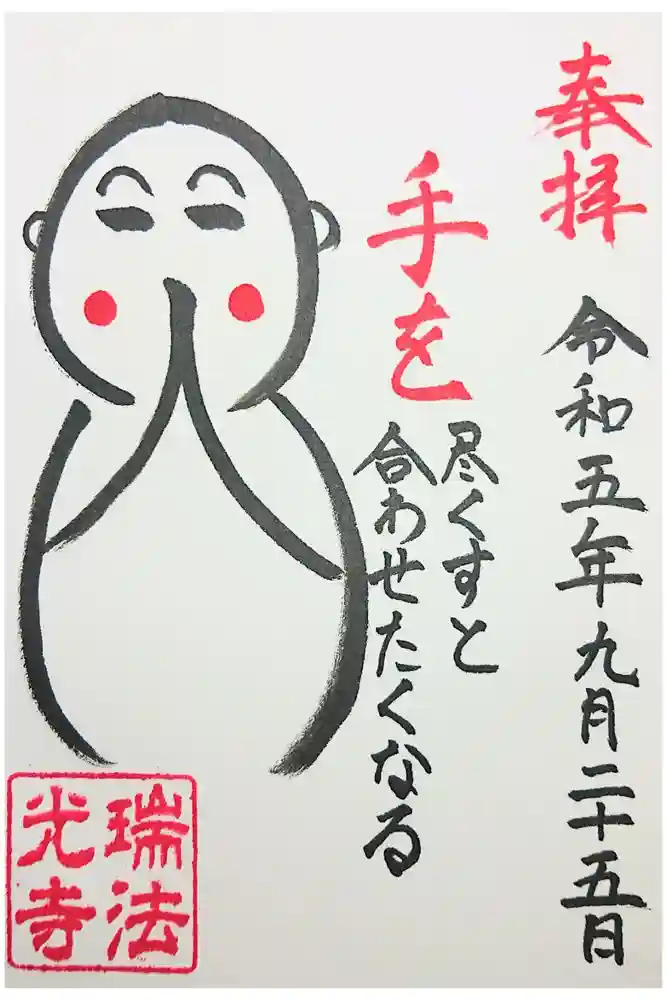 奉拝
令和五年九月二十五日
手を
尽くすと
合わせたくなる
瑞法
光寺